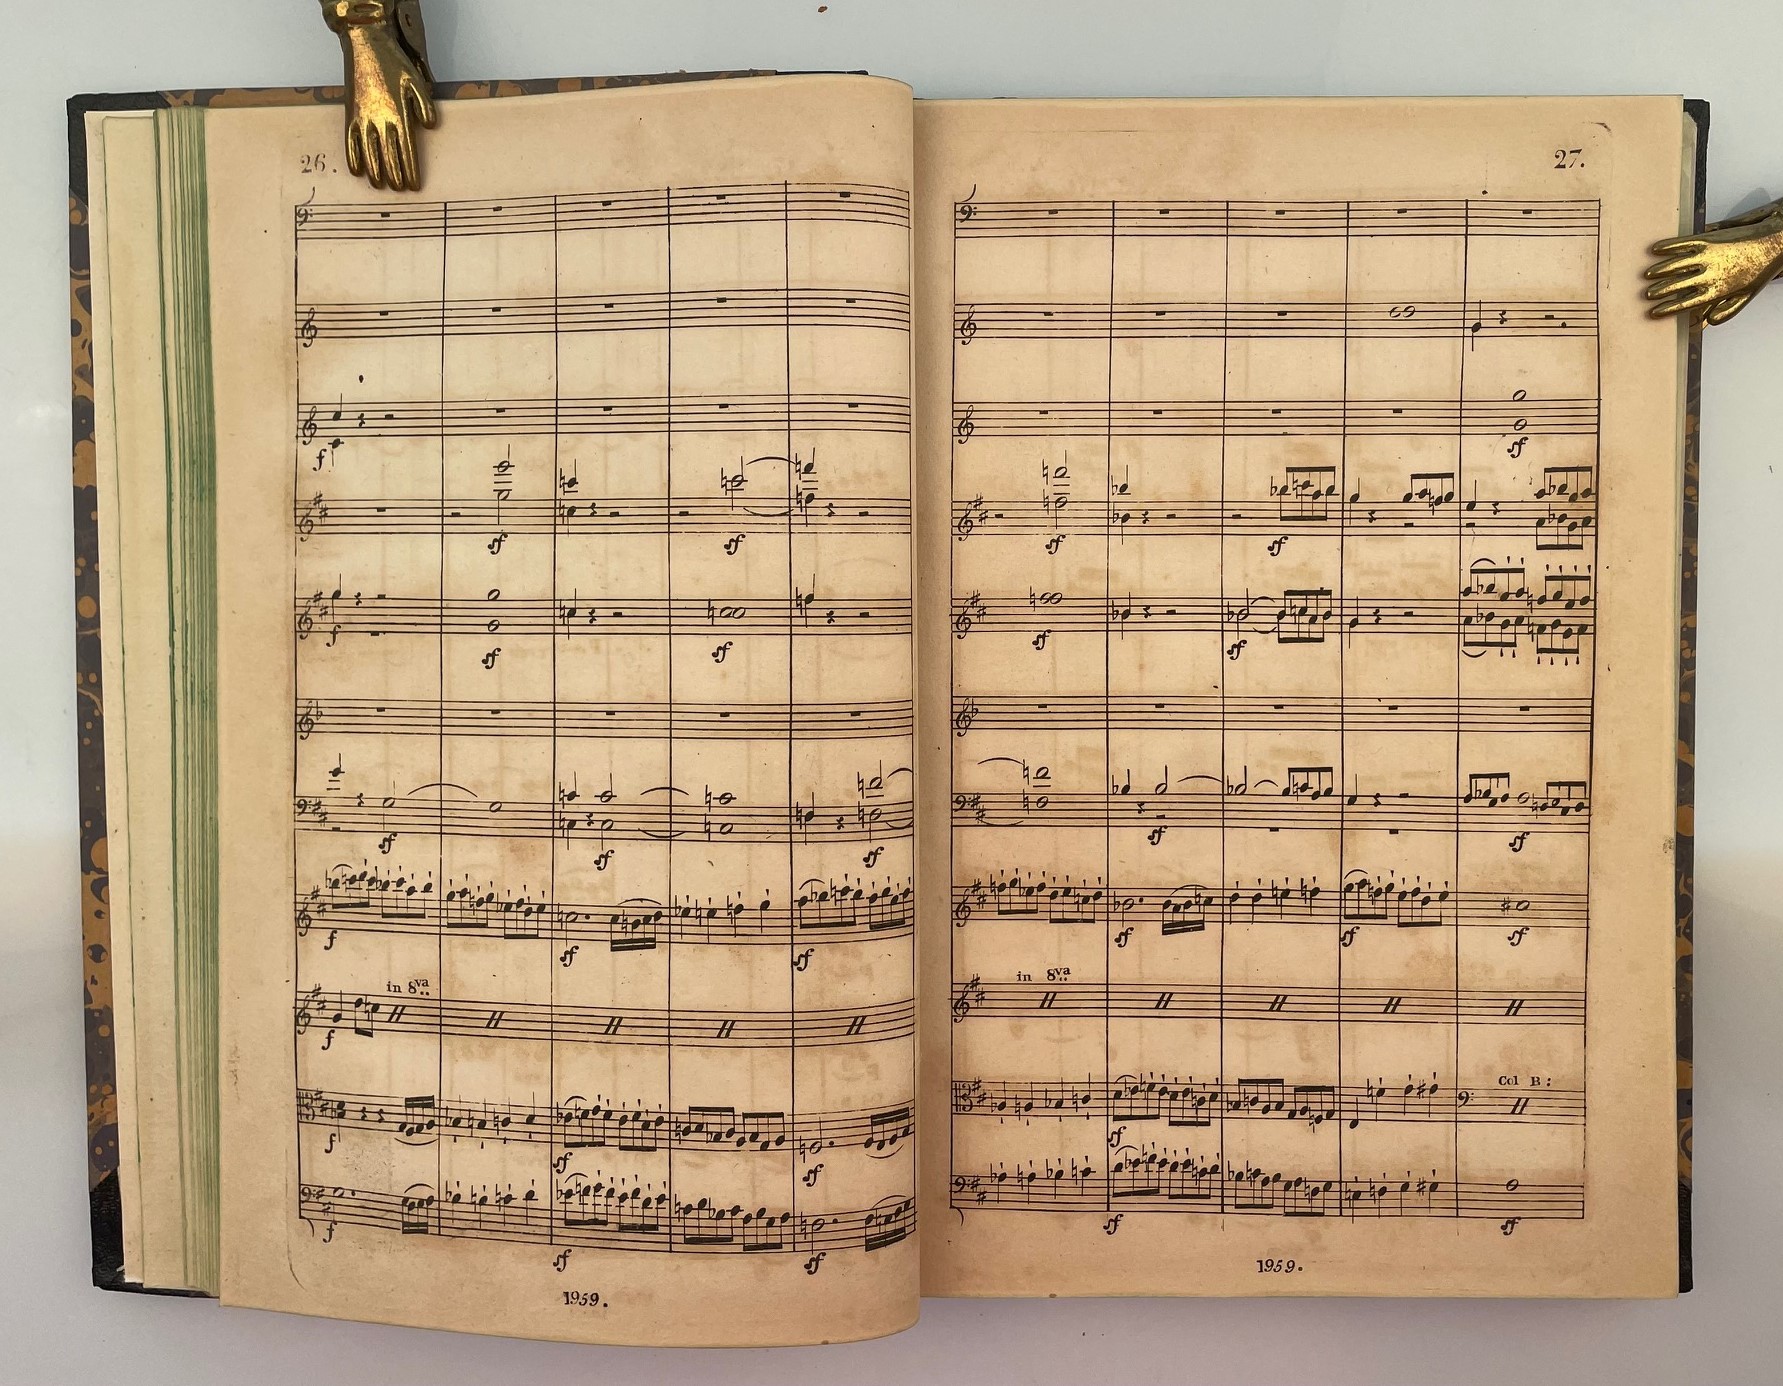 26.
f
sf
sf
f
sf
sf
sf
sf
sf
f
sf
sf
in 8va
f
f
sf
sf
f
sf
sf
1959.
27.
sf
sf
sf
sf
sf
sf
sf
sf
sf
sf
in 8va
Col B:
sf
sf
sf
1959.